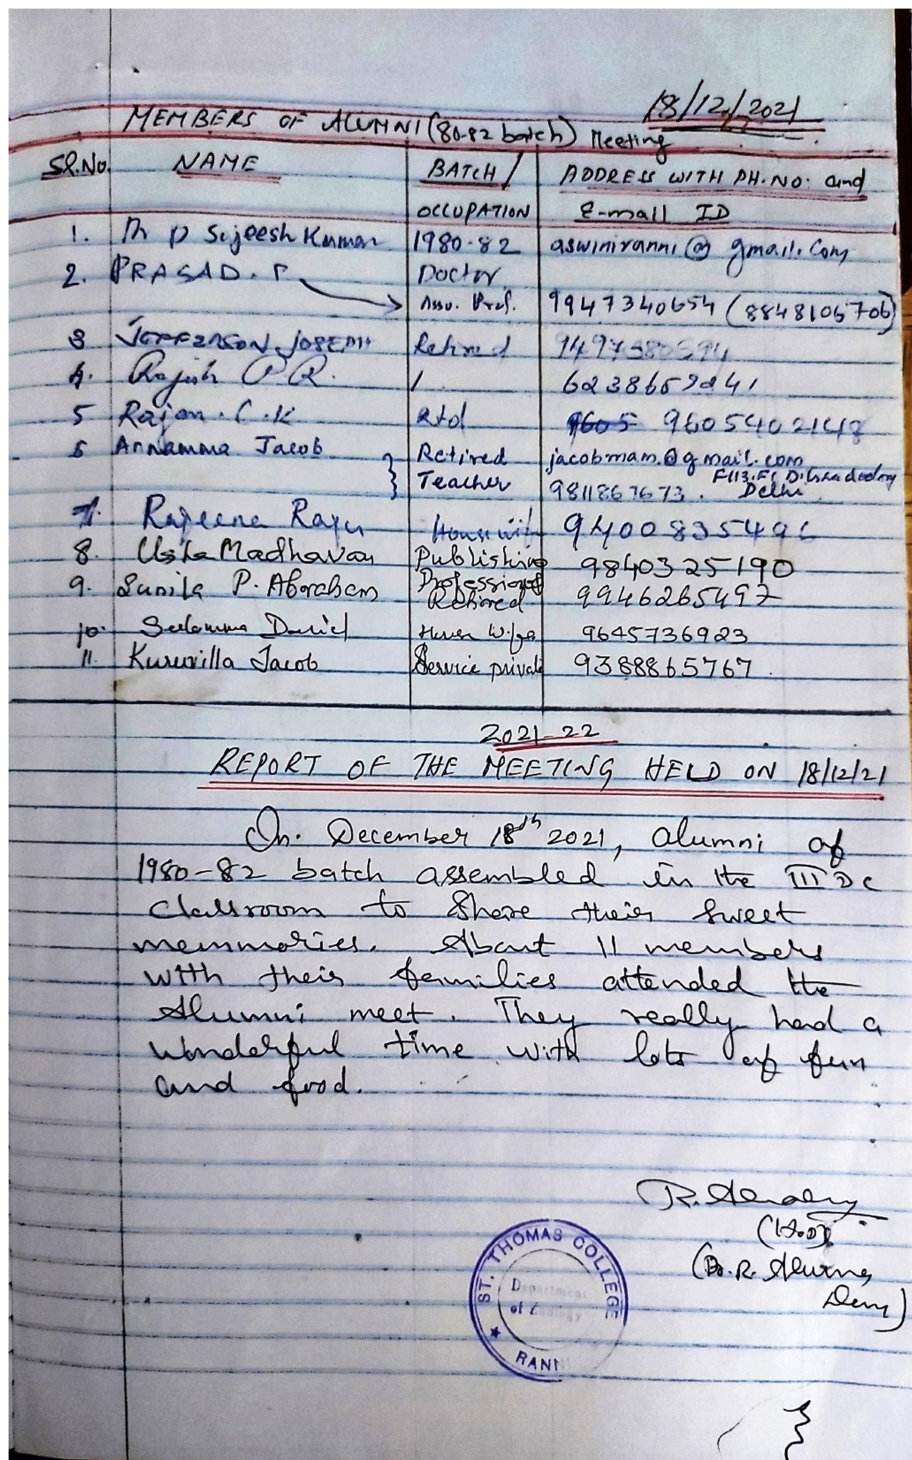 18/12/2021
MEMBERS OF ALUMNI (80-82 batch) Meeting
Sl.No. NAME BATCH / OCCUPATION ADDRESS WITH PH.NO: and E-mail ID
1. M P Sajeesh Kumar 1980-82 Doctor aswiniranni@gmail.com
2. PRASAD. P Asso. Prof. 9947340654 (8848106706)
3 JEFFERSON JOSEPH Retired
4. Rajesh P R. / 6238659241
5 Rajan. C. K Rtd 9605 9605402148
6 Annamma Jacob } Retired Teacher jacobmam.@gmail.com
9811867673. Delhi
7. Rajeena Raju Housewife 9400835496
8. Usha Madhavan Publishing Professional 9840325190
9. Sunila P. Abraham Retired 9946265497
10. Daniel House Wife 9645736923
11. Kuruvilla Jacob Service private 9388865767
2021-22
REPORT OF THE MEETING HELD ON 18/12/21
On December 18th 2021, alumni of
1980-82 batch assembled in the III Dc
classroom to share their sweet
memmories. About 11 members
with their families attended the
Alumni meet. They really had a
wonderful time with lots of fun
and food.
(HOD)
ST. THOMAS COLLEGE
Department
of Zoology
RANNI